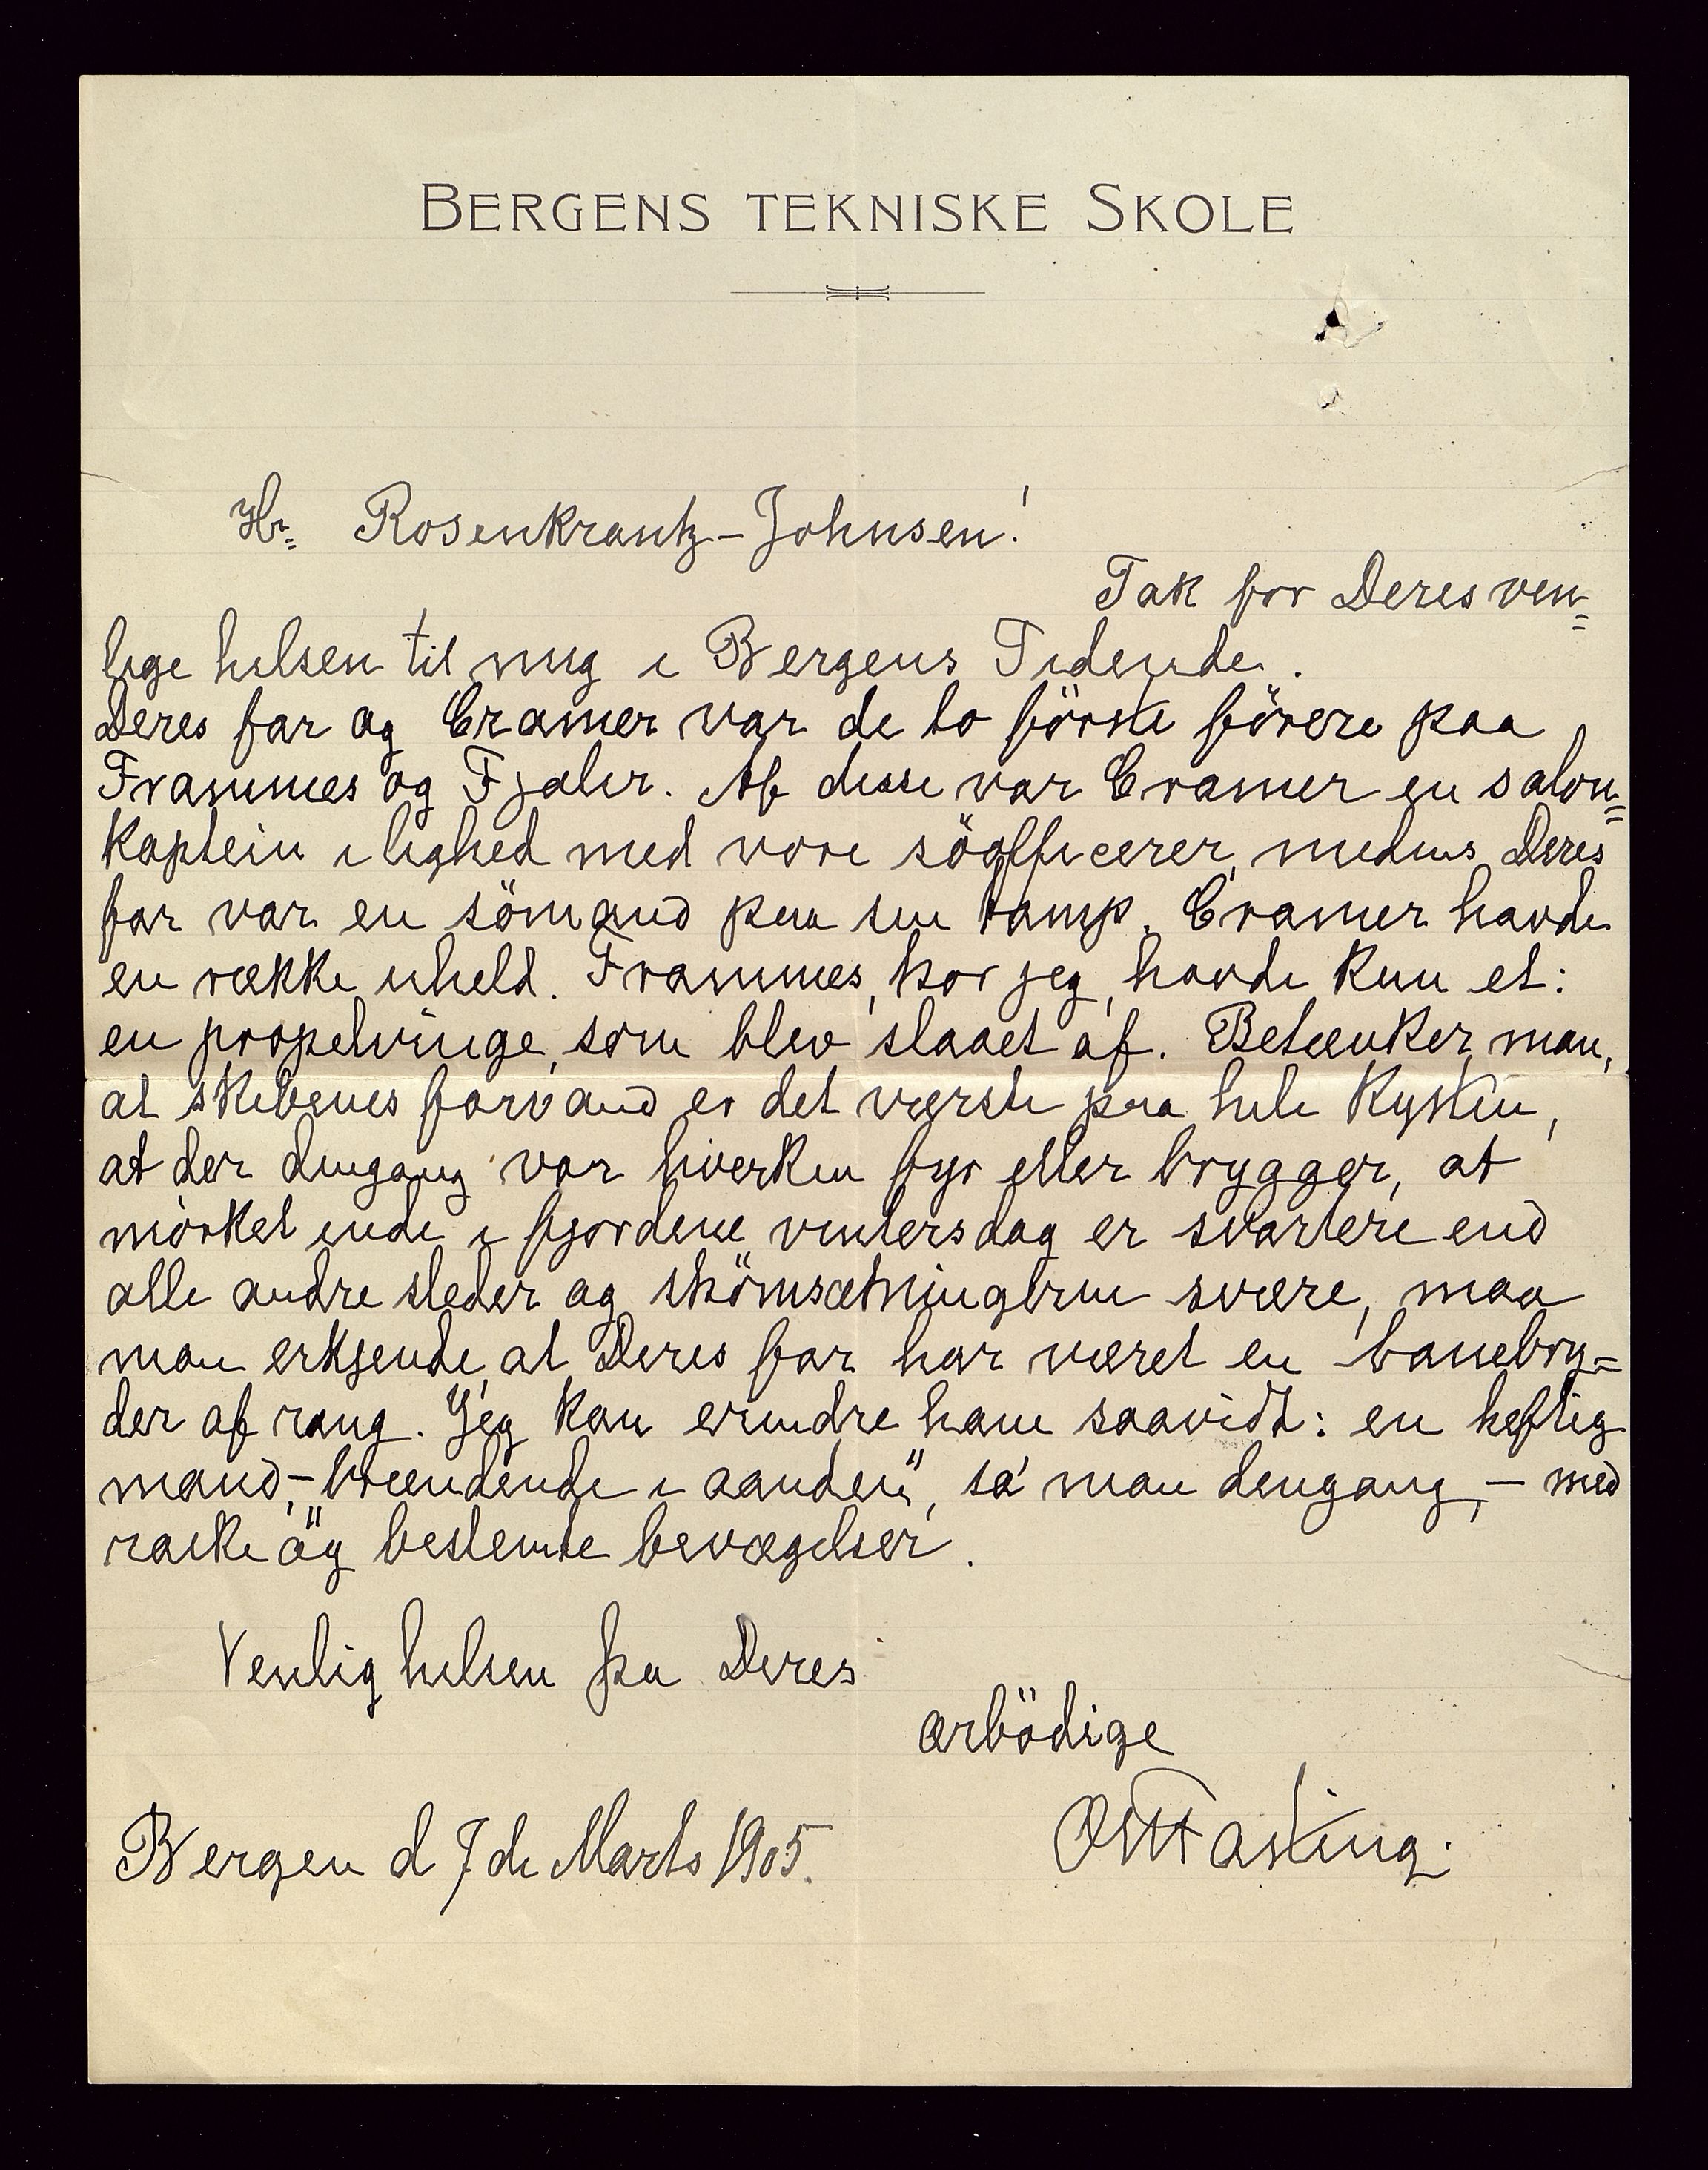 BERGENS TEKNISKE SKOLE
Hr. Rosenkrantz-Johnsen!
Tak for Deres ven=
lige hilsen til mig i Bergens Tidende.
Deres far og Cramer var de to förste förere paa
Framnæs og Fjaler. Af disse var Cramer en salon=
kaptein i lighed med vore söofficerer, medens Deres
far var en sömand paa sin tamp. Cramer havde
en række uheld. Framnæs, tror jeg, havde kun et:
en propelvinge, som blev slaaet af. Betænker man,
at skibenes farvand er det værste paa hele kysten,
at der dengang var hverken fyr eller brygger, at
mörket inde i fjordene vintersdag er svartere end
alle andre steder og strömsætningerne svære, maa
man erkjende, at Deres far har været en banebry=
der af rang. Jeg kan erindre ham saavidt: en heftig
mand, – "brændende i aanden", sa' man dengang, – med
raske og bestemte bevægelser.
Venlig hilsen fra Deres
ærbödige
Bergen d 7de Marts 1905.